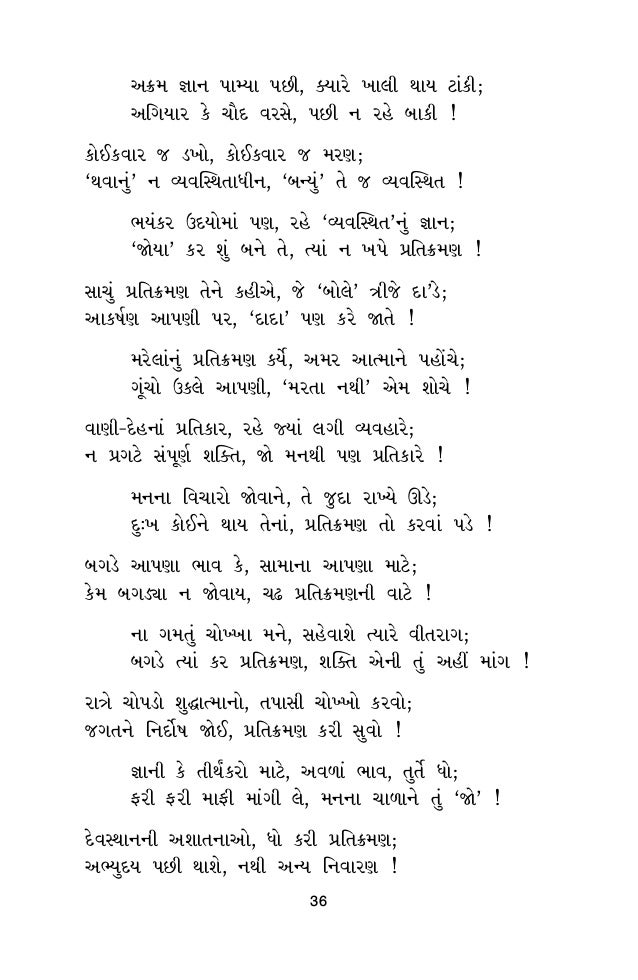 અક્રમ જ્ઞાન પામ્યા પછી, ક્યારે ખાલી થાય ટાંકી;
અગિયાર કે ચૌદ વરસે, પછી ન રહે બાકી !
કોઈકવાર જ ડખો, કોઈકવાર જ મરણ;
‘થવાનું’ ન વ્યવસ્થિતાધીન, ‘બન્યું’ તે જ વ્યવસ્થિત !
ભયંકર ઉદયોમાં પણ, રહે ‘વ્યવસ્થિત’નું જ્ઞાન;
‘જોયા’ કર શું બને તે, ત્યાં ન ખપે પ્રતિક્રમણ !
સાચું પ્રતિક્રમણ તેને કહીએ, જે ‘બોલે’ ત્રીજે દા’ડે;
આકર્ષણ આપણી પર, ‘દાદા’ પણ કરે જાતે !
મરેલાંનું પ્રતિક્રમણ કર્યે, અમર આત્માને પહોંચે;
ગૂંચો ઉકલે આપણી, ‘મરતા નથી’ એમ શોચે !
વાણી-દેહનાં પ્રતિકાર, રહે જ્યાં લગી વ્યવહારે;
ન પ્રગટે સંપૂર્ણ શક્તિ, જો મનથી પણ પ્રતિકારે !
મનના વિચારો જોવાને, તે જુદા રાખ્યે ઊડે;
દુઃખ કોઈને થાય તેનાં, પ્રતિક્રમણ તો કરવાં પડે !
બગડે આપણા ભાવ કે, સામાના આપણા માટે;
કેમ બગડ્યા ન જોવાય, ચઢ પ્રતિક્રમણની વાટે !
ના ગમતું ચોખ્ખા મને, સહેવાશે ત્યારે વીતરાગ;
બગડે ત્યાં કર પ્રતિક્રમણ, શક્તિ એની તું અહીં માંગ !
રાત્રે ચોપડો શુદ્ધાત્માનો, તપાસી ચોખ્ખો કરવો;
જગતને નિર્દોષ જોઈ, પ્રતિક્રમણ કરી સુવો !
જ્ઞાની કે તીર્થંકરો માટે, અવળાં ભાવ, તુર્તે ધો;
ફરી ફરી માફી માંગી લે, મનના ચાળાને તું ‘જો’ !
દેવસ્થાનની અશાતનાઓ, ધો કરી પ્રતિક્રમણ;
અભ્યુદય પછી થાશે, નથી અન્ય નિવારણ !
36